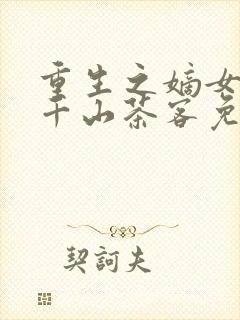 重生之嫡女
千山茶客免
契訶夫